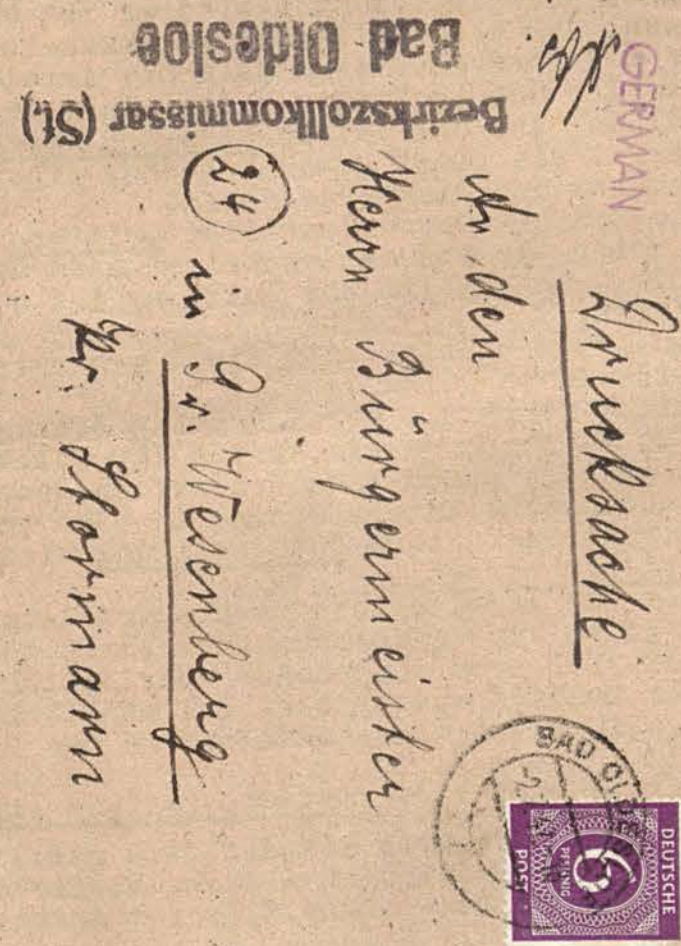 Bezirkszollkommissar (St.)
Bad Oldesloe
GERMAN
Drucksache
An den
Herrn Bürgermeister
(24) in Gr. Wesenberg
Kr. Stormarn
BAD OLDESLOE
DEUTSCHE
6
PFENNIG
POST